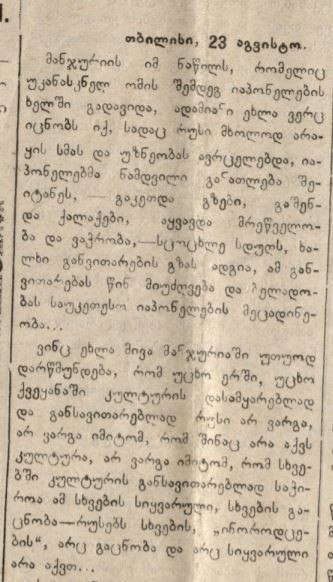 თბილისი, 23 აგვისტო.
მანჯურიის იმ ნაწილს, რომელიც
უკანასკნელ ომის შემდეგ იაპონელების
ხელში გადავიდა, ადამიანი ეხლა ვერც
იცნობს იქ, სადაც რუსი მხოლოდ არა-
ყის სმას და უზნეობას ავრცელებდა, ია-
პონელებმა ნამდვილი განათლება შე-
იტანეს, — გაკეთდა გზები, გაშენ-
და ქალაქები, აყვავდა მრეწველო-
ბა და ვაჭრობა,—სცოცხლე სდუღს, ხა-
ლხი განვითარების გზას ადგია, ამ გან-
ვითარებას წინ მიუძღვება და ხელადო-
ბას საუკეთესო იაპონელების მეცადინე-
ობა...
ვინც ეხლა მივა მანჯურიაში უთუოდ
დარწმუნდება, რომ უცხო ერში, უცხო
ქვეყანაში კულტურის დასამყარებლად
და განსავითარებლად რუსი არ ვარგა,
არ ვარგა იმიტომ, რომ შინაც არა აქვს
კულტურა, არ ვარგა იმიტომ, რომ სხვე-
ბში კულტურის განსავითარებლად საჭი-
როა ამ სხვების სიყვარული, სხვების გა-
ცნობა—რუსებს სხვების, „ინოროდცე-
ბის“, არც გაცნობა და არც სიყვარული
არა აქვთ...